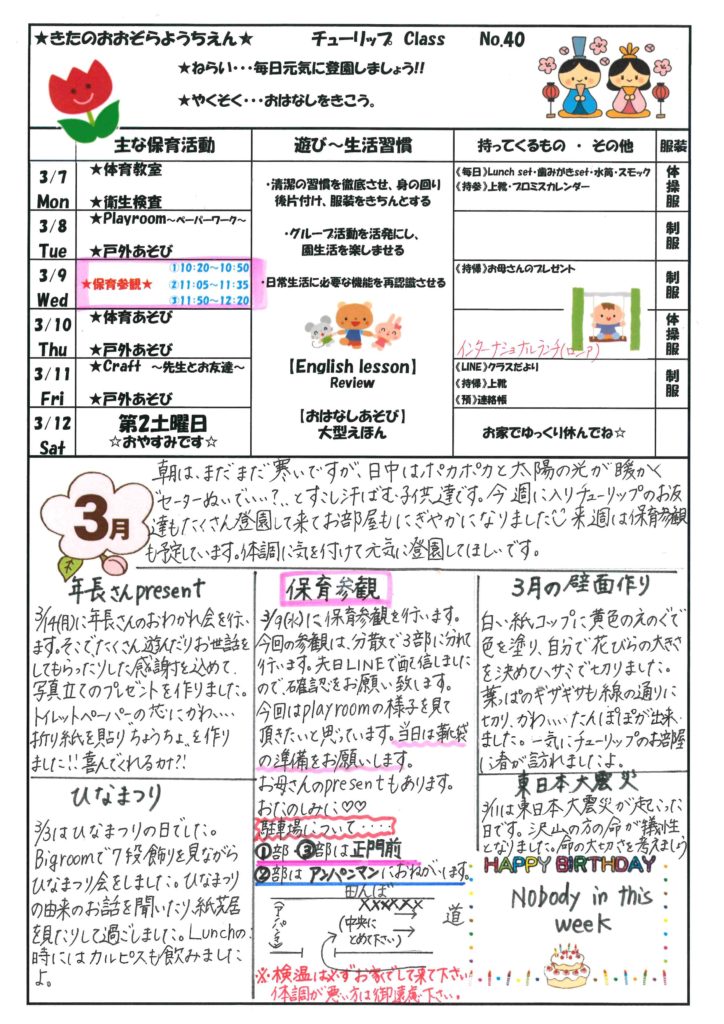 ★きたのおおぞらようちえん★　チューリップ Class　No.40
★ねらい・・・毎日元気に登園しましょう!!
★やくそく・・・おはなしをきこう。
主な保育活動　遊び～生活習慣　持ってくるもの ・ その他　服装
3/7 Mon
★体育教室
★衛生検査
《毎日》Lunch set・歯みがきset・水筒・スモック
《持参》上靴・プロミスカレンダー
体操服
3/8 Tue
★Playroom～ペーパーワーク～
★戸外あそび
制服
3/9 Wed
★保育参観★
①10:20～10:50
②11:05～11:35
③11:50～12:20
《持帰》お母さんのプレゼント
制服
3/10 Thu
★体育あそび
★戸外あそび
インターナショナルランチ(ロシア)
体操服
3/11 Fri
★Craft ～先生とお友達～
★戸外あそび
《LINE》クラスだより
《持帰》上靴
《預》連絡帳
制服
3/12 Sat
第2土曜日
☆おやすみです☆
お家でゆっくり休んでね☆
・清潔の習慣を徹底させ、身の回り
後片付け、服装をきちんとする
・グループ活動を活発にし、
園生活を楽しませる
・日常生活に必要な機能を再認識させる
【English lesson】
Review
【おはなしあそび】
大型えほん
3月
朝は、まだまだ寒いですが、日中はポカポカと太陽の光が暖かく
"セーターぬいでいい?"、とすこし汗ばむ子供達です。今週に入りチューリップのお友
達もたくさん登園して来てお部屋もにぎやかになりました 来週は保育参観
も予定しています。体調に気を付けて元気に登園してほしいです。
年長さんpresent
3/14(月)に年長さんのおわかれ会を行い
ます。そこでたくさん遊んだりお世話を
してもらったりした感謝を込めて、
写真立てのプレゼントを作りました。
トイレットペーパーの芯にかわいい
折り紙を貼り"ちょうちょ"を作り
ました!!喜んでくれるかな?!
ひなまつり
3/3はひなまつりの日でした。
Bigroomで7段飾りを見ながら
ひなまつり会をしました。ひなまつり
の由来のお話を聞いたり、紙芝居
を見たりして過ごしました。Lunchの
時にはカルピスも飲みました
よ。
保育参観
3/9(水)に保育参観を行います。
今回の参観は、分散で3部に分れて
行います。先日LINEで配信しました
ので、確認をお願い致します。
今回はplayroomの様子を見て
頂きたいと思っています。当日は靴袋
の準備をお願いします。
お母さんのpresentもあります。
おたのしみに♡♡
駐車場について・・・・
①部・③部は正門前
②部はアンパンマンにおねがいします。
田んぼ
××××××
アンパンマン
(中央に
とめて下さい)
道
※検温は必ずお家でして来て下さい
体調が悪い方は御遠慮下さい。
3月の壁面作り
白い紙コップに黄色のえのぐで
色を塗り、自分で花びらの大きさ
を決めハサミで切りました。
葉っぱのギザギザも線の通りに
切り、かわいいたんぽぽが出来
ました。一気にチューリップのお部屋
に春が訪れましたよ。
東日本大震災
3/11は東日本大震災が起こった
日です。沢山の方の命が犠牲
となりました。命の大切さを考えましょう
HAPPY BIRTHDAY
Nobody in this
week